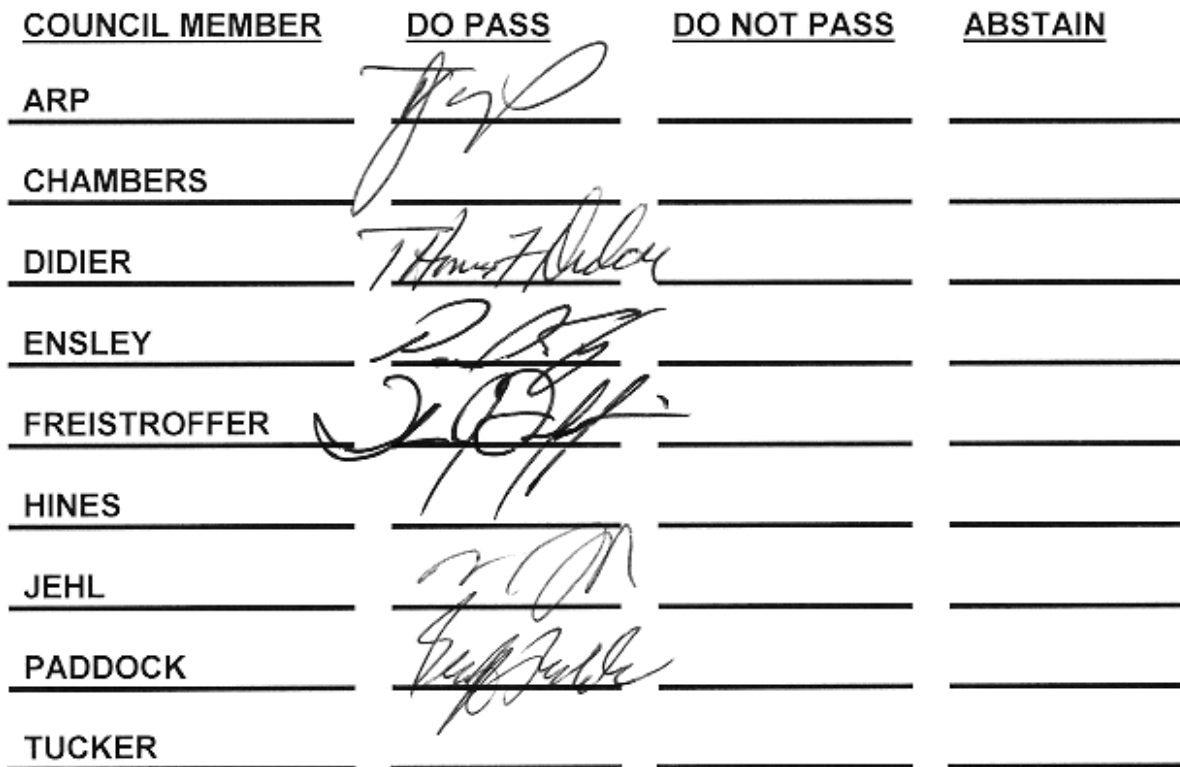 COUNCIL MEMBER DO PASS DO NOT PASS ABSTAIN
ARP
CHAMBERS
DIDIER
ENSLEY
FREISTROFFER
HINES
JEHL
PADDOCK
TUCKER